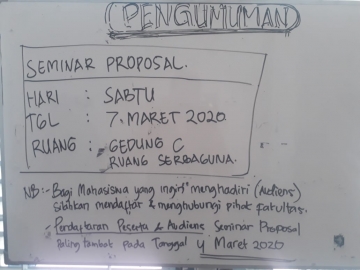 PENGUMUMAN
SEMINAR PROPOSAL.
HARI : SABTU
TGL : 7. MARET 2020
RUANG : GEDUNG C
RUANG SERBAGUNA.
NB: - Bagi Mahasiswa yang ingin menghadiri (Audiens)
silahkan mendaftar & menghubungi pihak fakultas.
- Pendaftaran Peserta & Audiens Seminar Proposal
Paling lambat pada Tanggal 4 Maret 2020